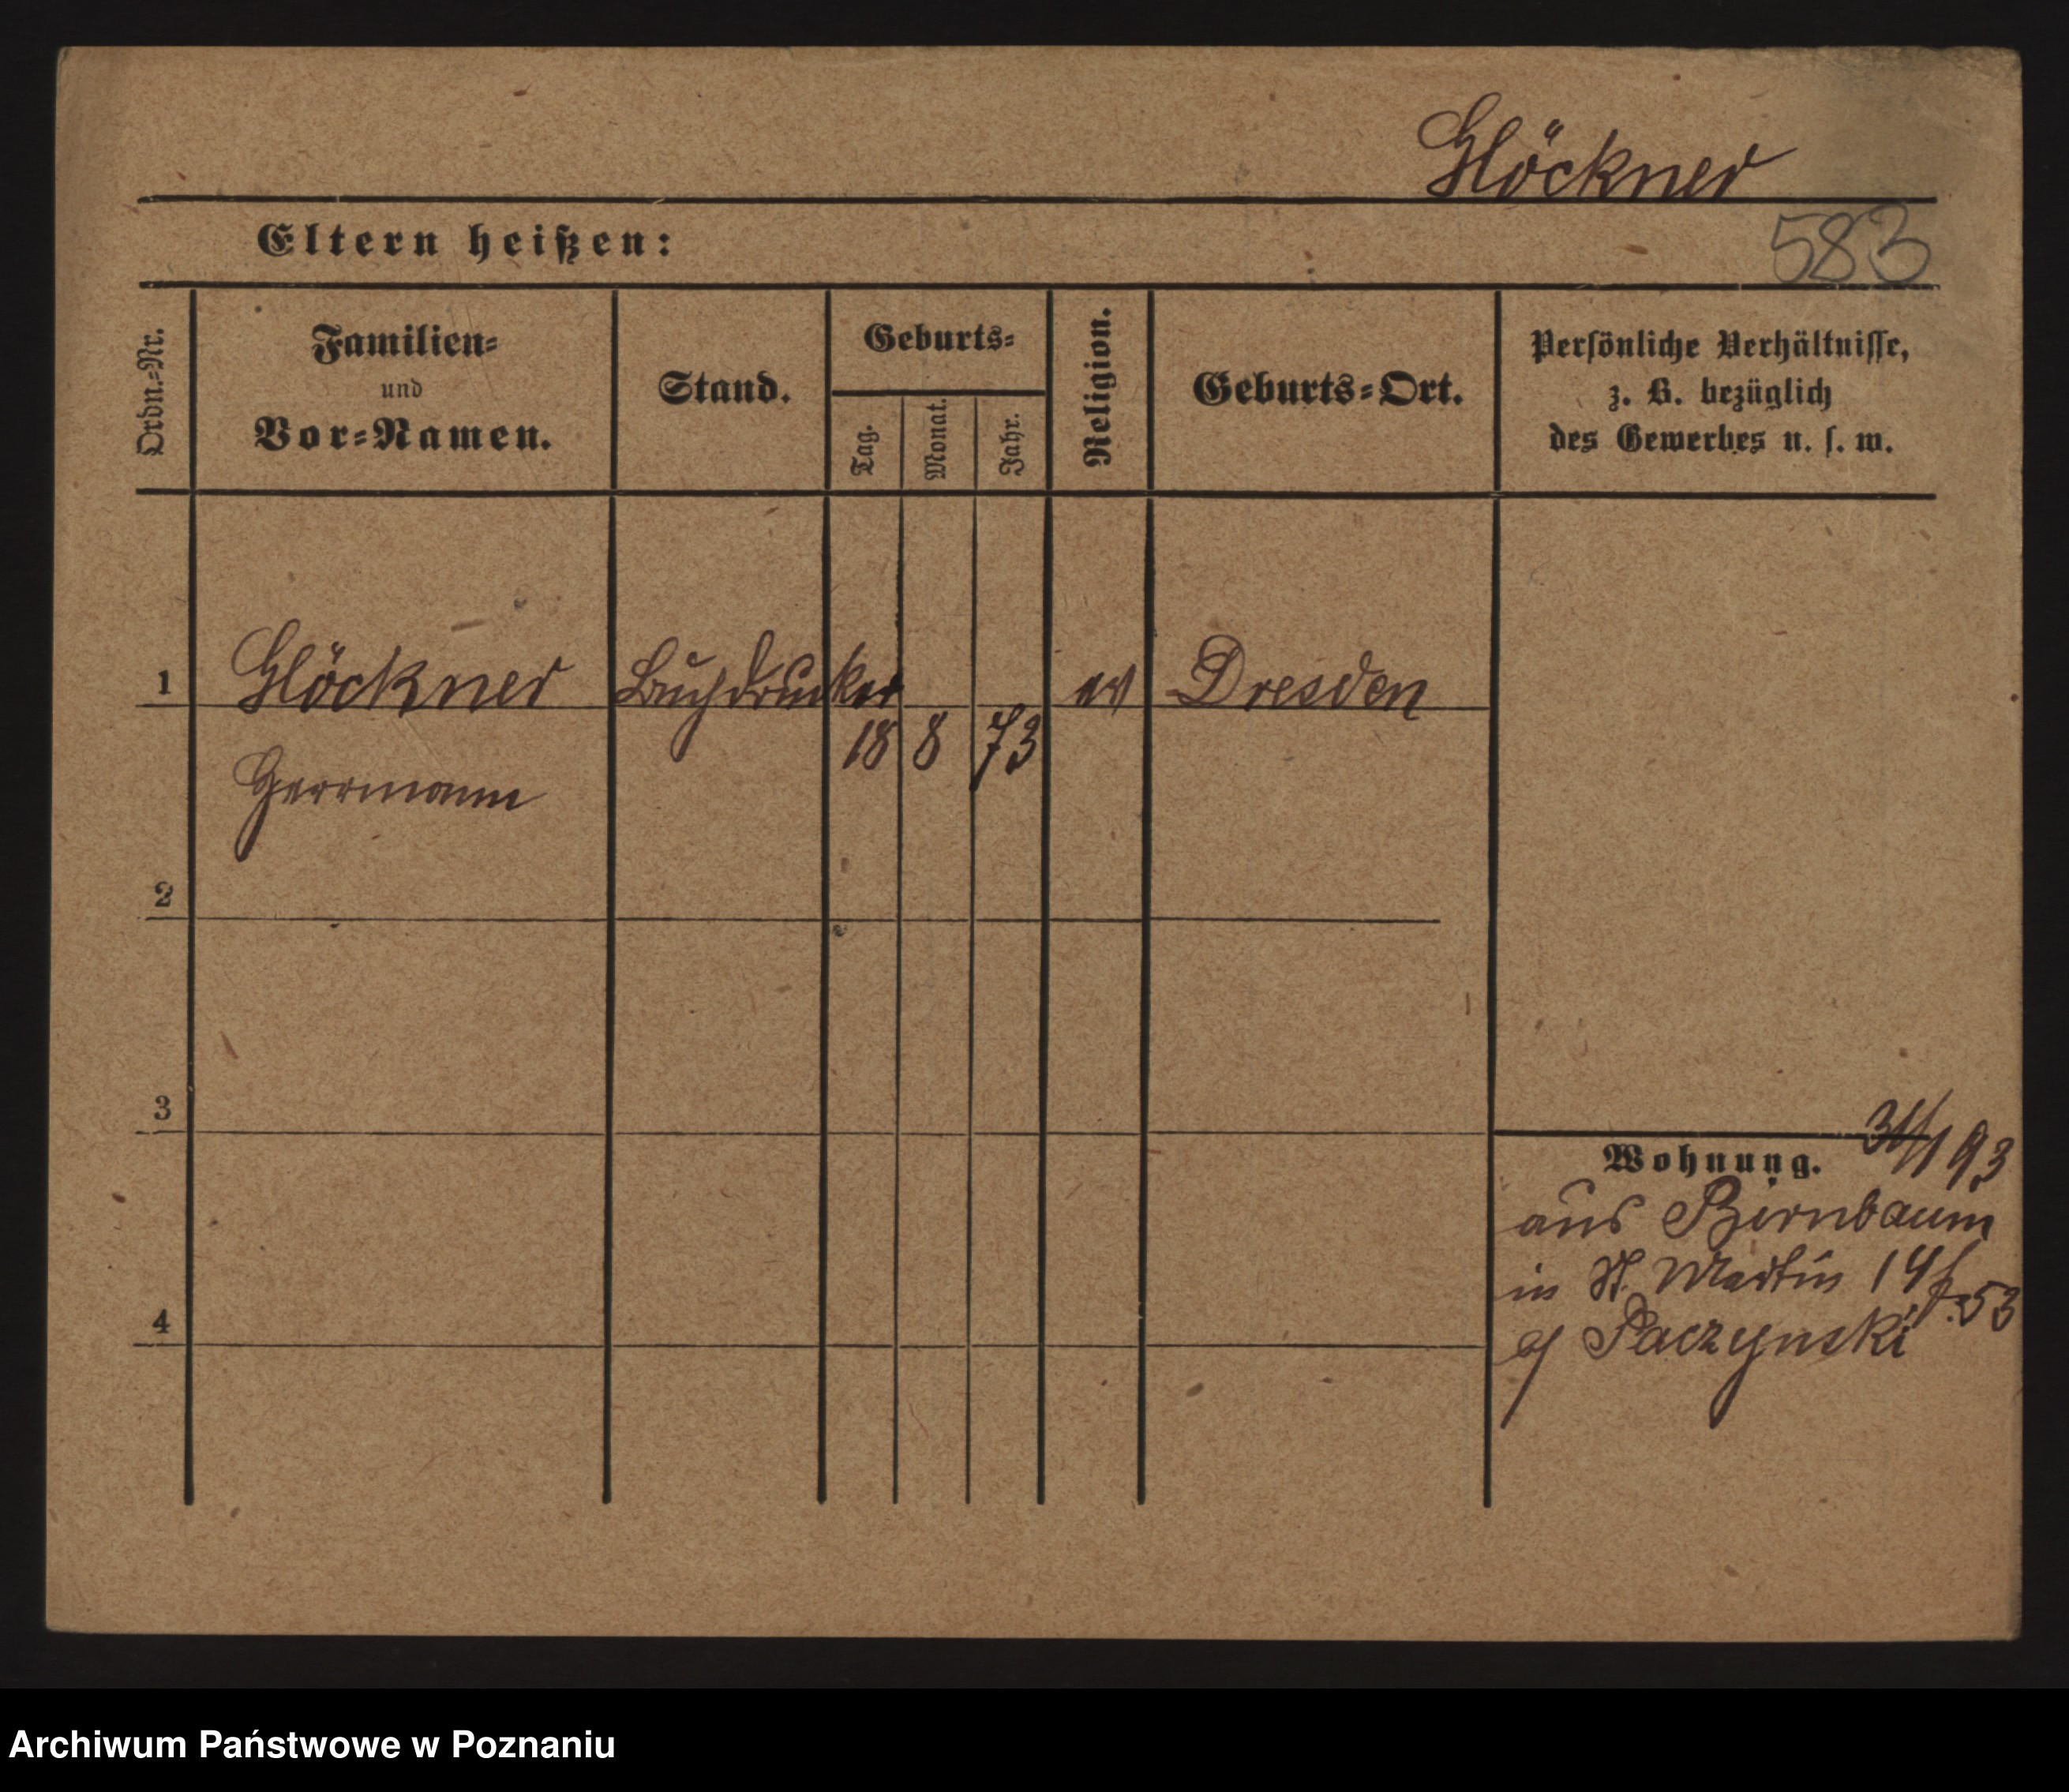 Glöckner
Eltern heißen:
583
Ordn.-Nr.
Familien-
und
Vor-Namen.
Stand.
Geburts-
Tag.
Monat.
Jahr.
Religion.
Geburts-Ort.
Persönliche Verhältnisse,
z. B. bezüglich
des Gewerbes u. s. w.
1
Glöckner
Buchdrucker
18
8
73
ev
Dresden
Herrmann
2
3
4
Wohnung.
93
aus Birnbaum
in St. Martin 14
53
Paczynski
Archiwum Państwowe w Poznaniu